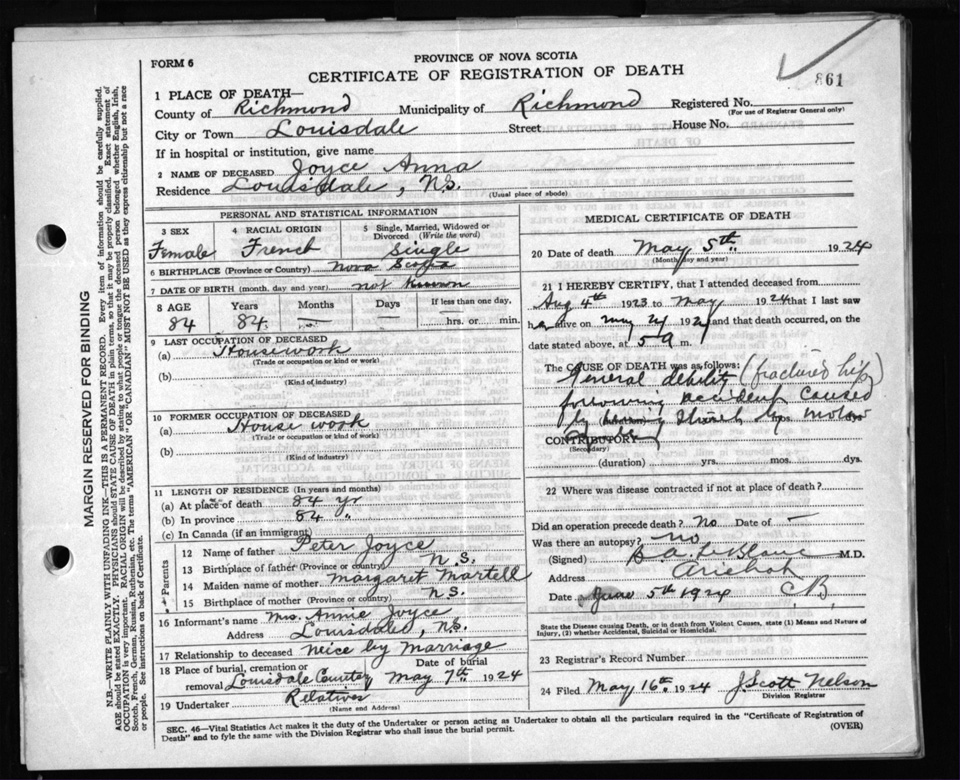 FORM 6
PROVINCE OF NOVA SCOTIA
CERTIFICATE OF REGISTRATION OF DEATH
861
1 PLACE OF DEATH—
County of Richmond Municipality of Richmond Registered No.
(For use of Registrar General only)
City or Town Louisdale Street House No.
If in hospital or institution, give name
2 NAME OF DECEASED Joyce Anna
Residence Louisdale, N.S. (Usual place of abode)
PERSONAL AND STATISTICAL INFORMATION
3 SEX 4 RACIAL ORIGIN 5 Single, Married, Widowed or Divorced (Write the word)
Female French Single
6 BIRTHPLACE (Province or Country) Nova Scotia
7 DATE OF BIRTH (month, day and year) not known
8 AGE Years Months Days If less than one day,
84 84 — — hrs. or min.
9 LAST OCCUPATION OF DECEASED
(a) Housework
(Trade or occupation or kind or work)
(b)
(Kind of industry)
10 FORMER OCCUPATION OF DECEASED
(a) House work
(Trade or occupation or kind or work)
(b)
(Kind of industry)
11 LENGTH OF RESIDENCE (In years and months)
(a) At place of death 84 yr
(b) In province 84 "
(c) In Canada (if an immigrant)
Parents
12 Name of father Peter Joyce
13 Birthplace of father (Province or country) N.S.
14 Maiden name of mother Margarit Martell
15 Birthplace of mother (Province or country) N.S.
16 Informant's name Mrs. Annie Joyce
Address Louisdale, N.S.
17 Relationship to deceased neice by marriage
18 Place of burial, cremation or removal Louisdale Date of burial May 7th 1924
19 Undertaker Relatives
(Name and Address)
MEDICAL CERTIFICATE OF DEATH
20 Date of death May 5th 1924
(Month, day and year)
21 I HEREBY CERTIFY, that I attended deceased from
Aug 4th 1923 to May 1924 that I last saw
h alive on May 192 and that death occurred, on the
date stated above, at m.
The CAUSE OF DEATH was as follows:
General debility (fractured hip)
following accident caused
by
CONTRIBUTORY
(Secondary)
(duration) yrs. mos. dys.
22 Where was disease contracted if not at place of death?
Did an operation precede death? No Date of —
Was there an autopsy? no
(Signed) B.A. LeBlanc M.D.
Address Arichat
Date June 5th 1924 C.B.
State the Disease causing Death, or in death from Violent Causes, state (1) Means and Nature of Injury, (2) whether Accidental, Suicidal or Homicidal.
23 Registrar's Record Number
24 Filed May 16th 1924 J. Scott Nelson
Division Registrar
SEC. 46—Vital Statistics Act makes it the duty of the Undertaker or person acting as Undertaker to obtain all the particulars required in the "Certificate of Registration of
Death" and to fyle the same with the Division Registrar who shall issue the burial permit. (OVER)
MARGIN RESERVED FOR BINDING
N.B.—WRITE PLAINLY WITH UNFADING INK—THIS IS A PERMANENT RECORD. Every item of information should be carefully supplied.
AGE should be stated EXACTLY. PHYSICIANS should STATE CAUSE OF DEATH in plain terms, so that it may be properly classified. Exact statement of
OCCUPATION is very important. RACIAL ORIGIN will be described by stating to what people or tongue the deceased person belonged whether English, Irish,
Scotch, French, German, Russian, Ruthenian, etc. The terms "AMERICAN" OR "CANADIAN" MUST NOT BE USED as they express citizenship but not a race
or people. See instructions on back of Certificate.